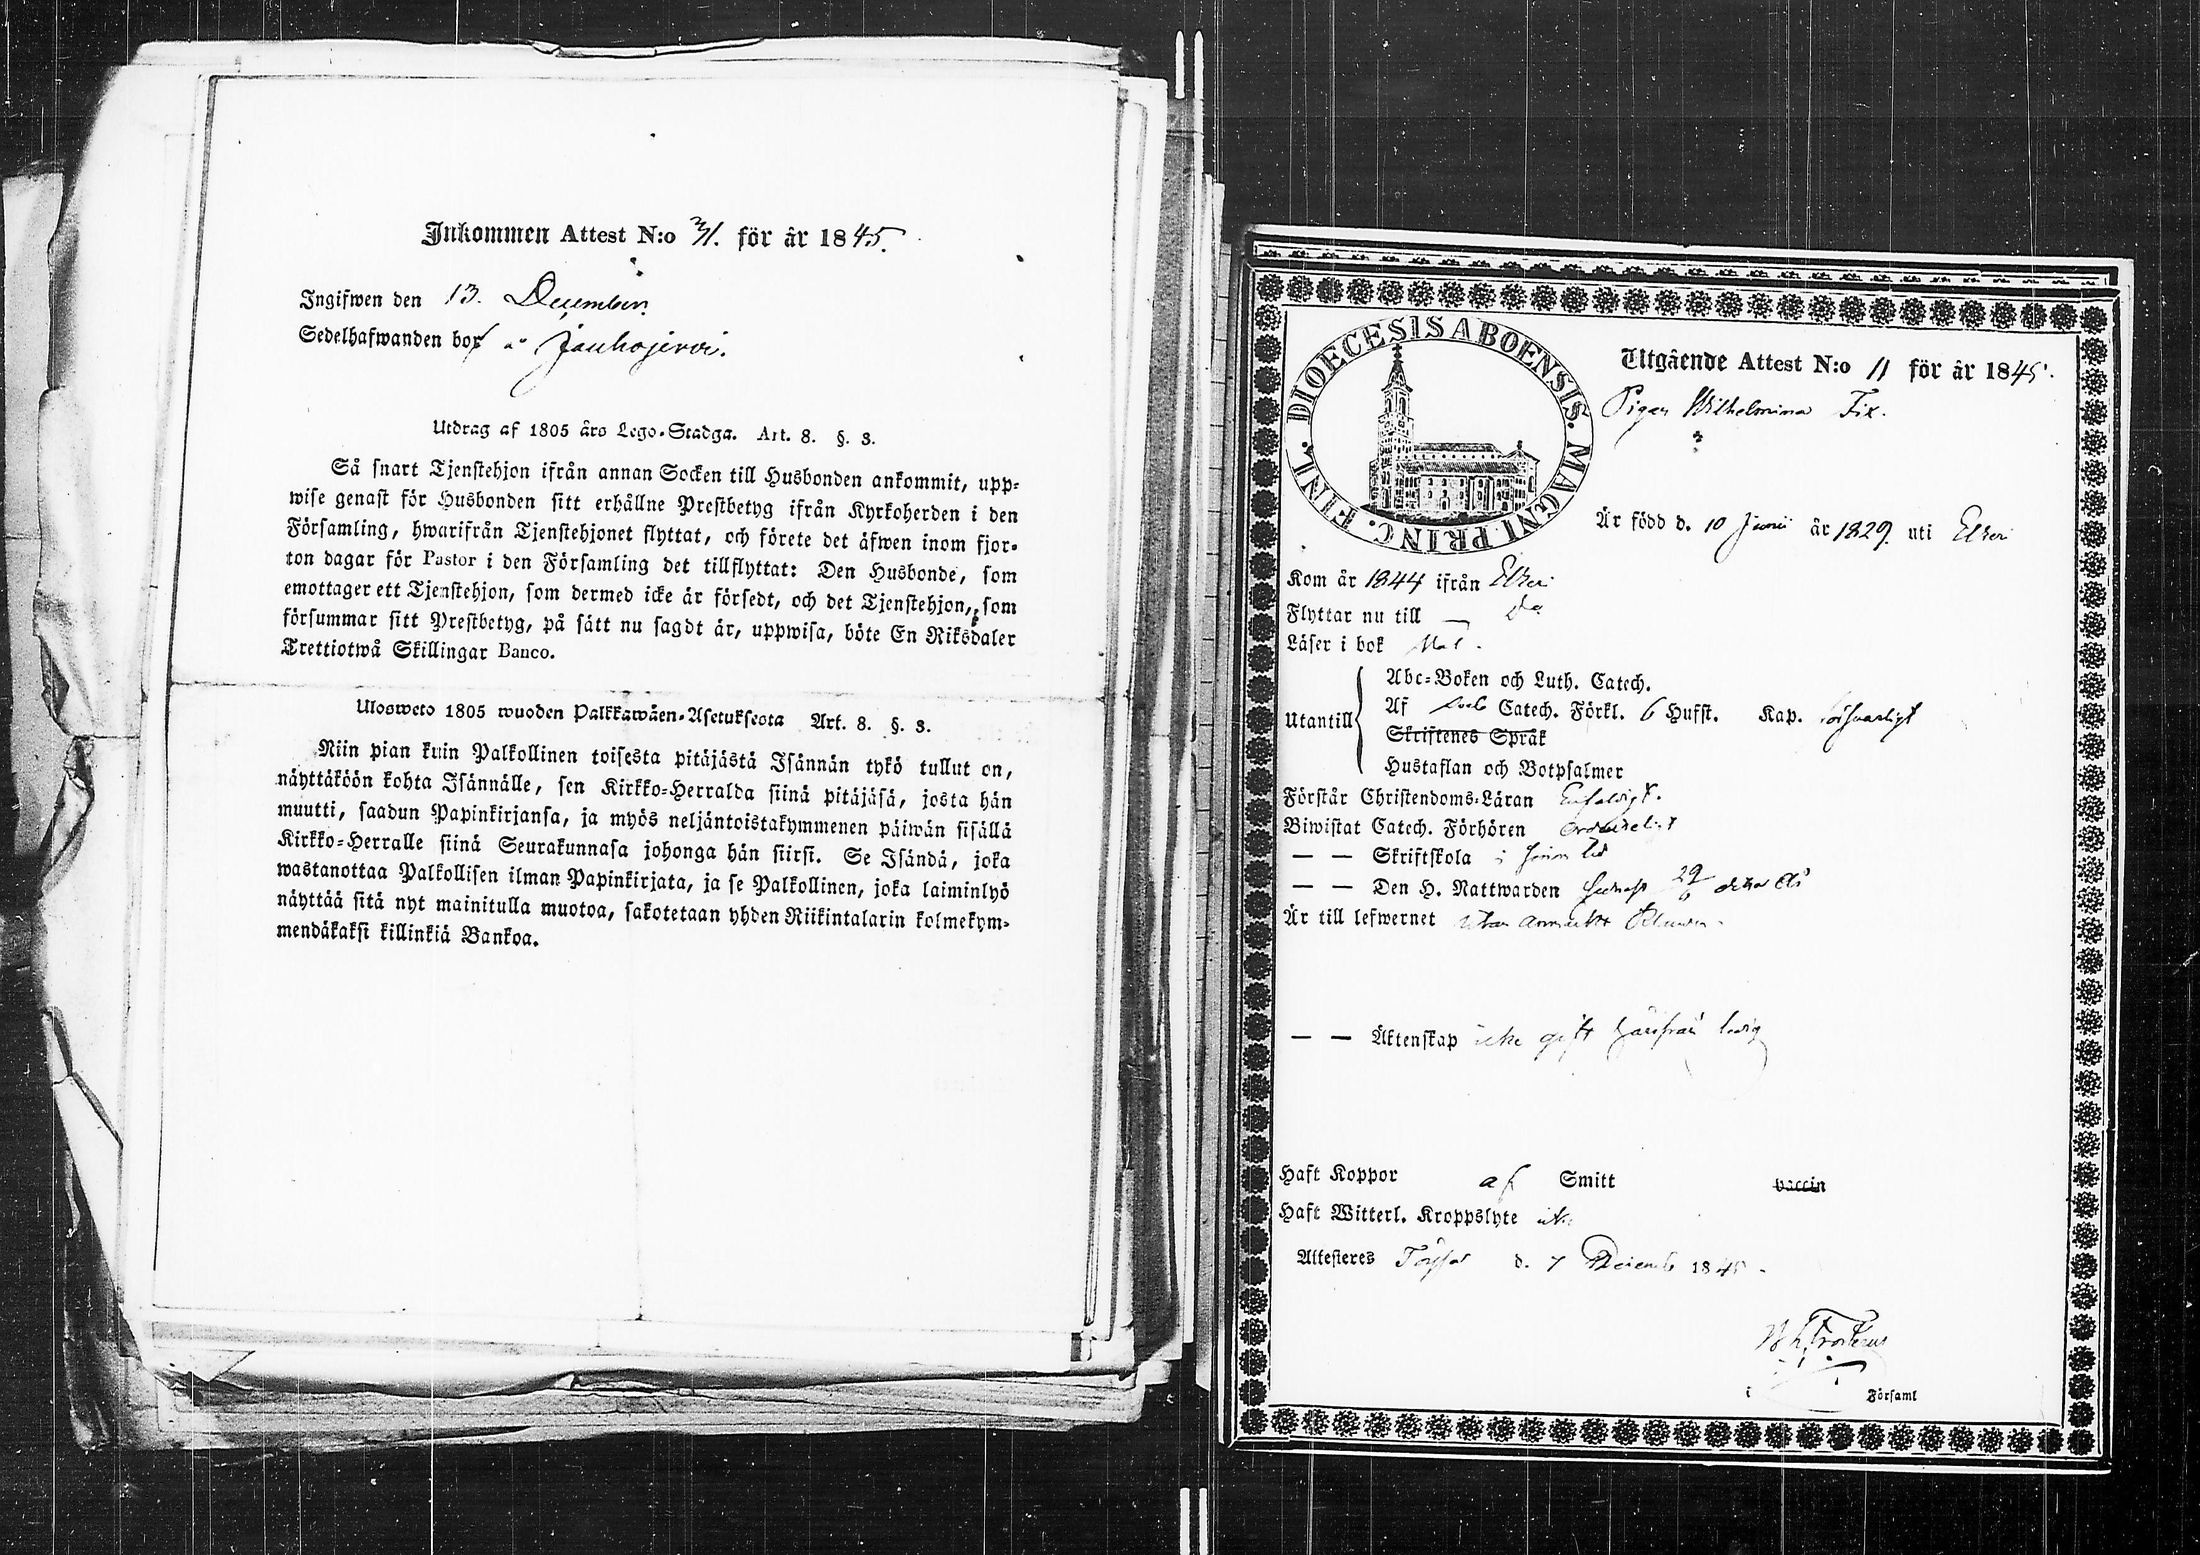 Inkommen Attest N:o 31. för år 1845.
Ingifwen den 13. December.
Sedelhafwanden bor å Jauhojervi.
Utdrag af 1805 års Lego-Stadga. Art. 8. §. 3.
Så snart Tjenstehjon ifrån annan Socken till Husbonden ankommit, upp-
wise genast för Husbonden sitt erhållne Prestbetyg ifrån Kyrkoherden i den
Församling, hwarifrån Tjenstehjonet flyttat, och förete det äfwen inom fjor-
ton dagar för Pastor i den Församling det tillflyttat: Den Husbonde, som
emottager ett Tjenstehjon, som dermed icke är försedt, och det Tjenstehjon, som
försummar sitt Prestbetyg, på sätt nu sagdt är, uppwisa, böte En Riksdaler
Trettiotwå Skillingar Banco.
Ulosweto 1805 wuoden Palkkawäen-Asetuksesta Art. 8. §. 3.
Niin pian kuin Palkollinen toisesta pitäjästä Isännän tykö tullut on,
näyttäköön kohta Isännälle, sen Kirkko-Herralda siinä pitäjäsä, josta hän
muutti, saadun Papinkirjansa, ja myös neljäntoistakymmenen päiwän sisällä
Kirkko-Herralle siinä Seurakunnasa johonga hän siirsi. Se Isändä, joka
wastanottaa Palkollisen ilman Papinkirjata, ja se Palkollinen, joka laiminlyö
näyttää sitä nyt mainitulla muotoa, sakotetaan yhden Riikintalarin kolmekym-
mendäkaksi killinkiä Bankoa.
DIOECESIS ABOENSIS. MAGNI PRINC. FINL.
Utgående Attest N:o 11 för år 1845.
Pigan Wilhelmina Fix.
Är född d. 10 Junii år 1829. uti Etseri
Kom år 1844 ifrån Etseri
Flyttar nu till — do
Läser i bok
Abc-Boken och Luth. Catech.
Utantill Af Catech. Förkl. 6 Hufst. Kap. försvarligt
Skriftenes Språk
Hustaflan och Botpsalmer
Förstår Christendoms-Läran Enfaldigt.
Biwistat Catech. Förhören ordentligt
— — Skriftskola i sinom tid
— — Den H. Nattwarden senast 29/6 detta år
Är till lefwernet utan anmärkt
— — Äktenskap icke gift härifrån ledig
Haft Koppor af Smitt vaccin
Haft Witterl. Kroppslyte
Attesteres Töysä d. 7 December 1845.
i Församl